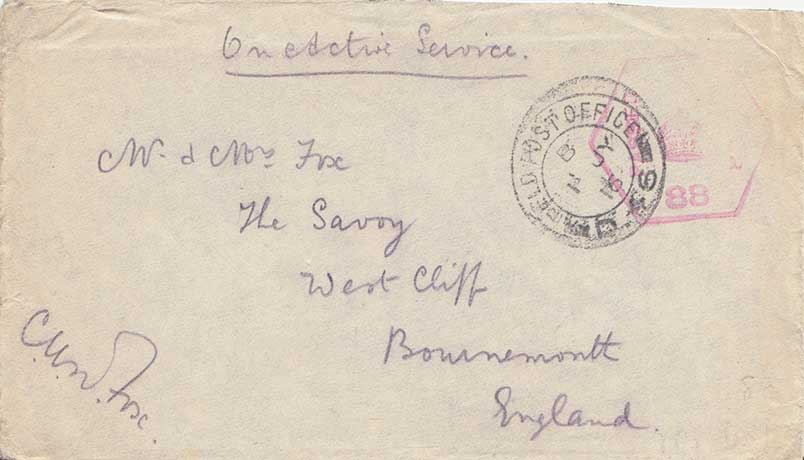 On Active Service.
FIELD POST OFFICE
88
Mr. & Mrs Fox
The Savoy
West Cliff
Bournemouth
England.
Fox.